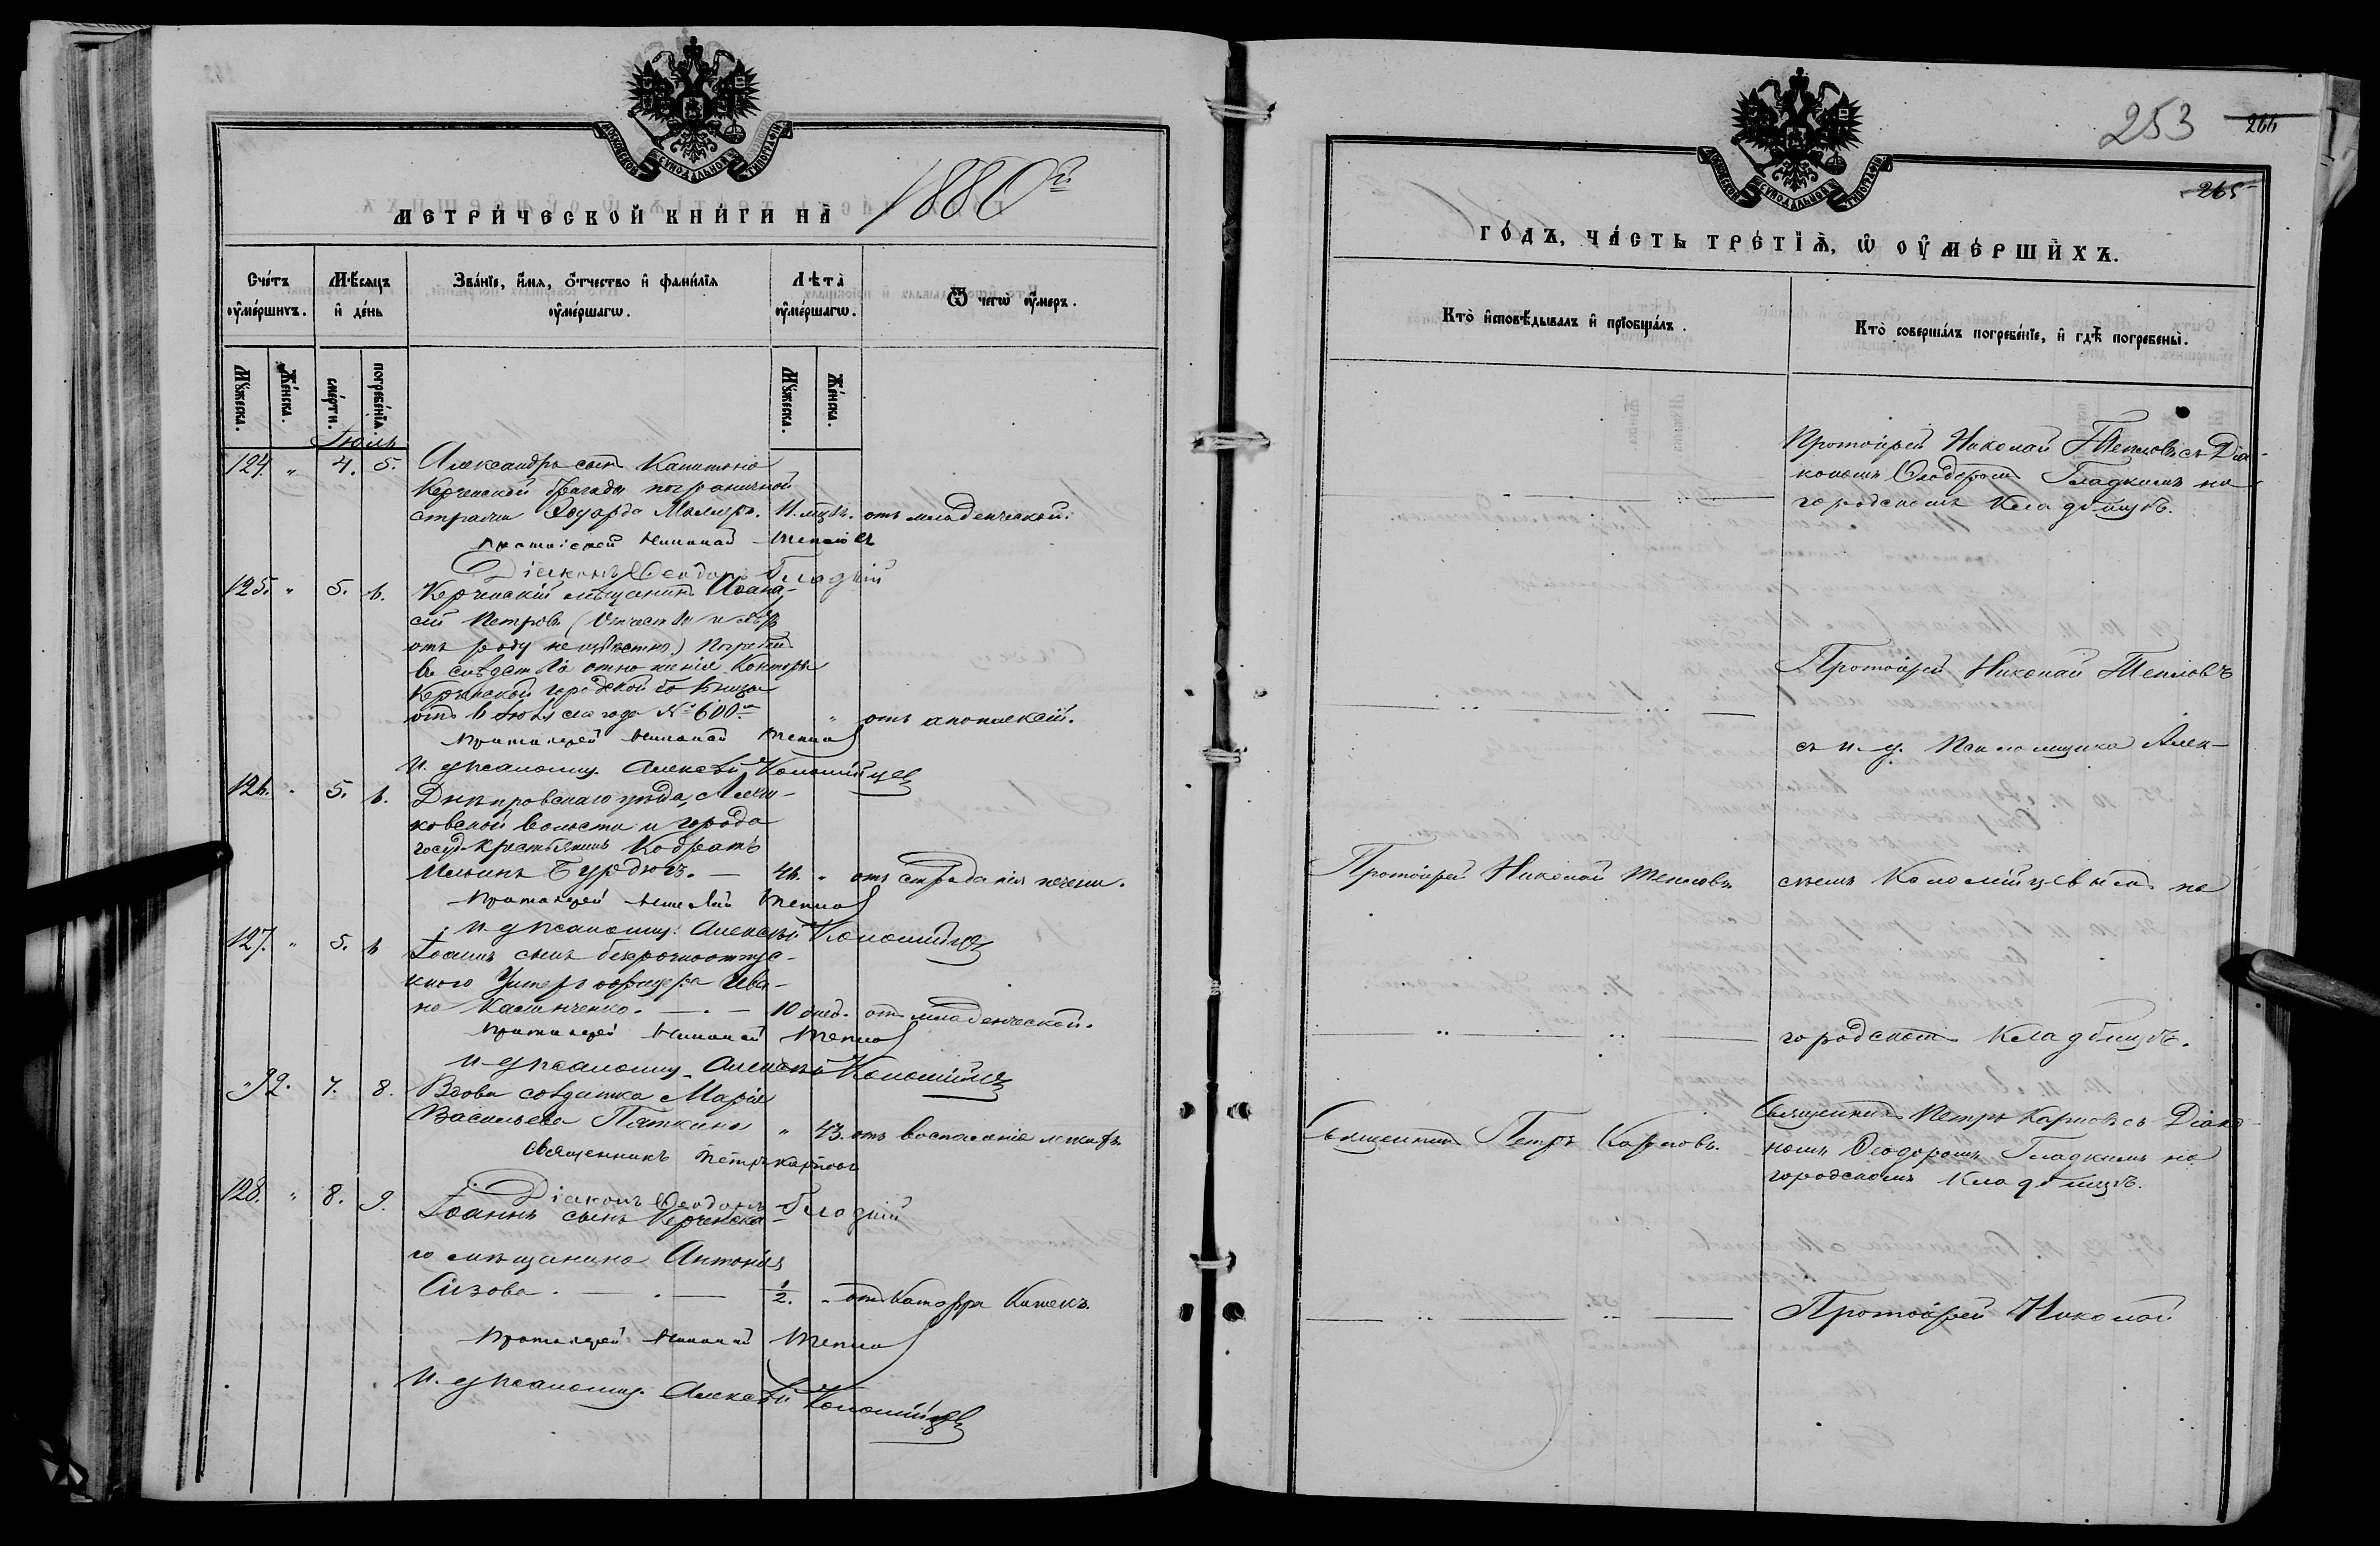 МОСКОВСКОЙ СѴНОДАЛЬНОЙ ТИПОГРАФІИ
МЕТРИЧЕСКОЙ КНИГИ НА 1880й
Счетъ оумершихъ.
Мѣсяцъ и день
Званіе, имя, отчество и фамилія оумершагѡ.
Лѣта оумершагѡ.
Ѿ чегѡ оумеръ.
Мужеска.
Женска.
смерти.
погребенія.
Мужеска.
Женска.
Іюль
124. " 4. 5. Александръ сынъ Капитана
Керченской бригады пограничной
стражи Эдуарда Миллеръ. 11. мцъ. отъ младенческой.
Протоіерей Николай Тепловъ
Діаконъ Ѳеодоръ Гладкій
125. " 5. 6. Керченскій мѣщанинъ Аѳана-
сій Петровъ (Отчество и
отъ роду неизвѣстно) Погребенъ
въ слѣдствіе отношенія Конторы
Керченской городской больницы
отъ 6 Іюля сего года № 600. " отъ апоплексіи.
Протоіерей Николай Тепловъ
И. д. псаломщ. Алексѣй Коломійцевъ
126. " 5. 6. Днѣпровскаго уѣзда, Алеш-
ковской волости и города
госуд. крестьянинъ Кодратъ
Ильинъ Бурдюгъ. — 46. " отъ страданія печени.
Протоіерей Николай Тепловъ
И. д. псаломщ. Алексѣй Коломійцевъ
127. " 5. 6 Іоаннъ сынъ безсрочноотпус-
кного Унтеръ офицера Ива-
на Касьянченко. — . — 10 дней. отъ младенческой.
Протоіерей Николай Тепловъ
И. д. псаломщ. Алексѣй Коломійцевъ
" 92. 7. 8. Вдова солдатка Марія
Васильева Пяткина " 43. отъ воспаленія легкихъ
Священникъ Петръ Карповъ
Діаконъ Ѳеодоръ Гладкій
128. " 8. 9. Іоаннъ сынъ Керченска-
го мѣщанина Антонія
Сизова. — . — 1/2. " отъ Катарра Кишекъ.
Протоіерей Николай Тепловъ
И. д. псаломщ. Алексѣй Коломійцевъ
253 266
265
МОСКОВСКОЙ СѴНОДАЛЬНОЙ ТИПОГРАФІИ
ГОДЪ, ЧАСТЬ ТРЕТІЯ, Ѡ ОУМЕРШИХЪ.
Кто исповѣдывалъ и пріобщалъ.
Кто совершалъ погребеніе, и гдѣ погребены.
Протоіерей Николай Тепловъ съ Діа-
кономъ Ѳеодоромъ Гладкимъ на
городскомъ Кладбищѣ.
Протоіерей Николай Тепловъ
съ и. д. Псаломщика Алек-
Протоіерей Николай Тепловъ
сѣемъ Коломійцевымъ на
городскомъ Кладбищѣ.
Священникъ Петръ Карповъ.
Священникъ Петръ Карповъ съ Діако-
номъ Ѳеодоромъ Гладкимъ на
городскомъ Кладбищѣ.
Протоіерей Николай